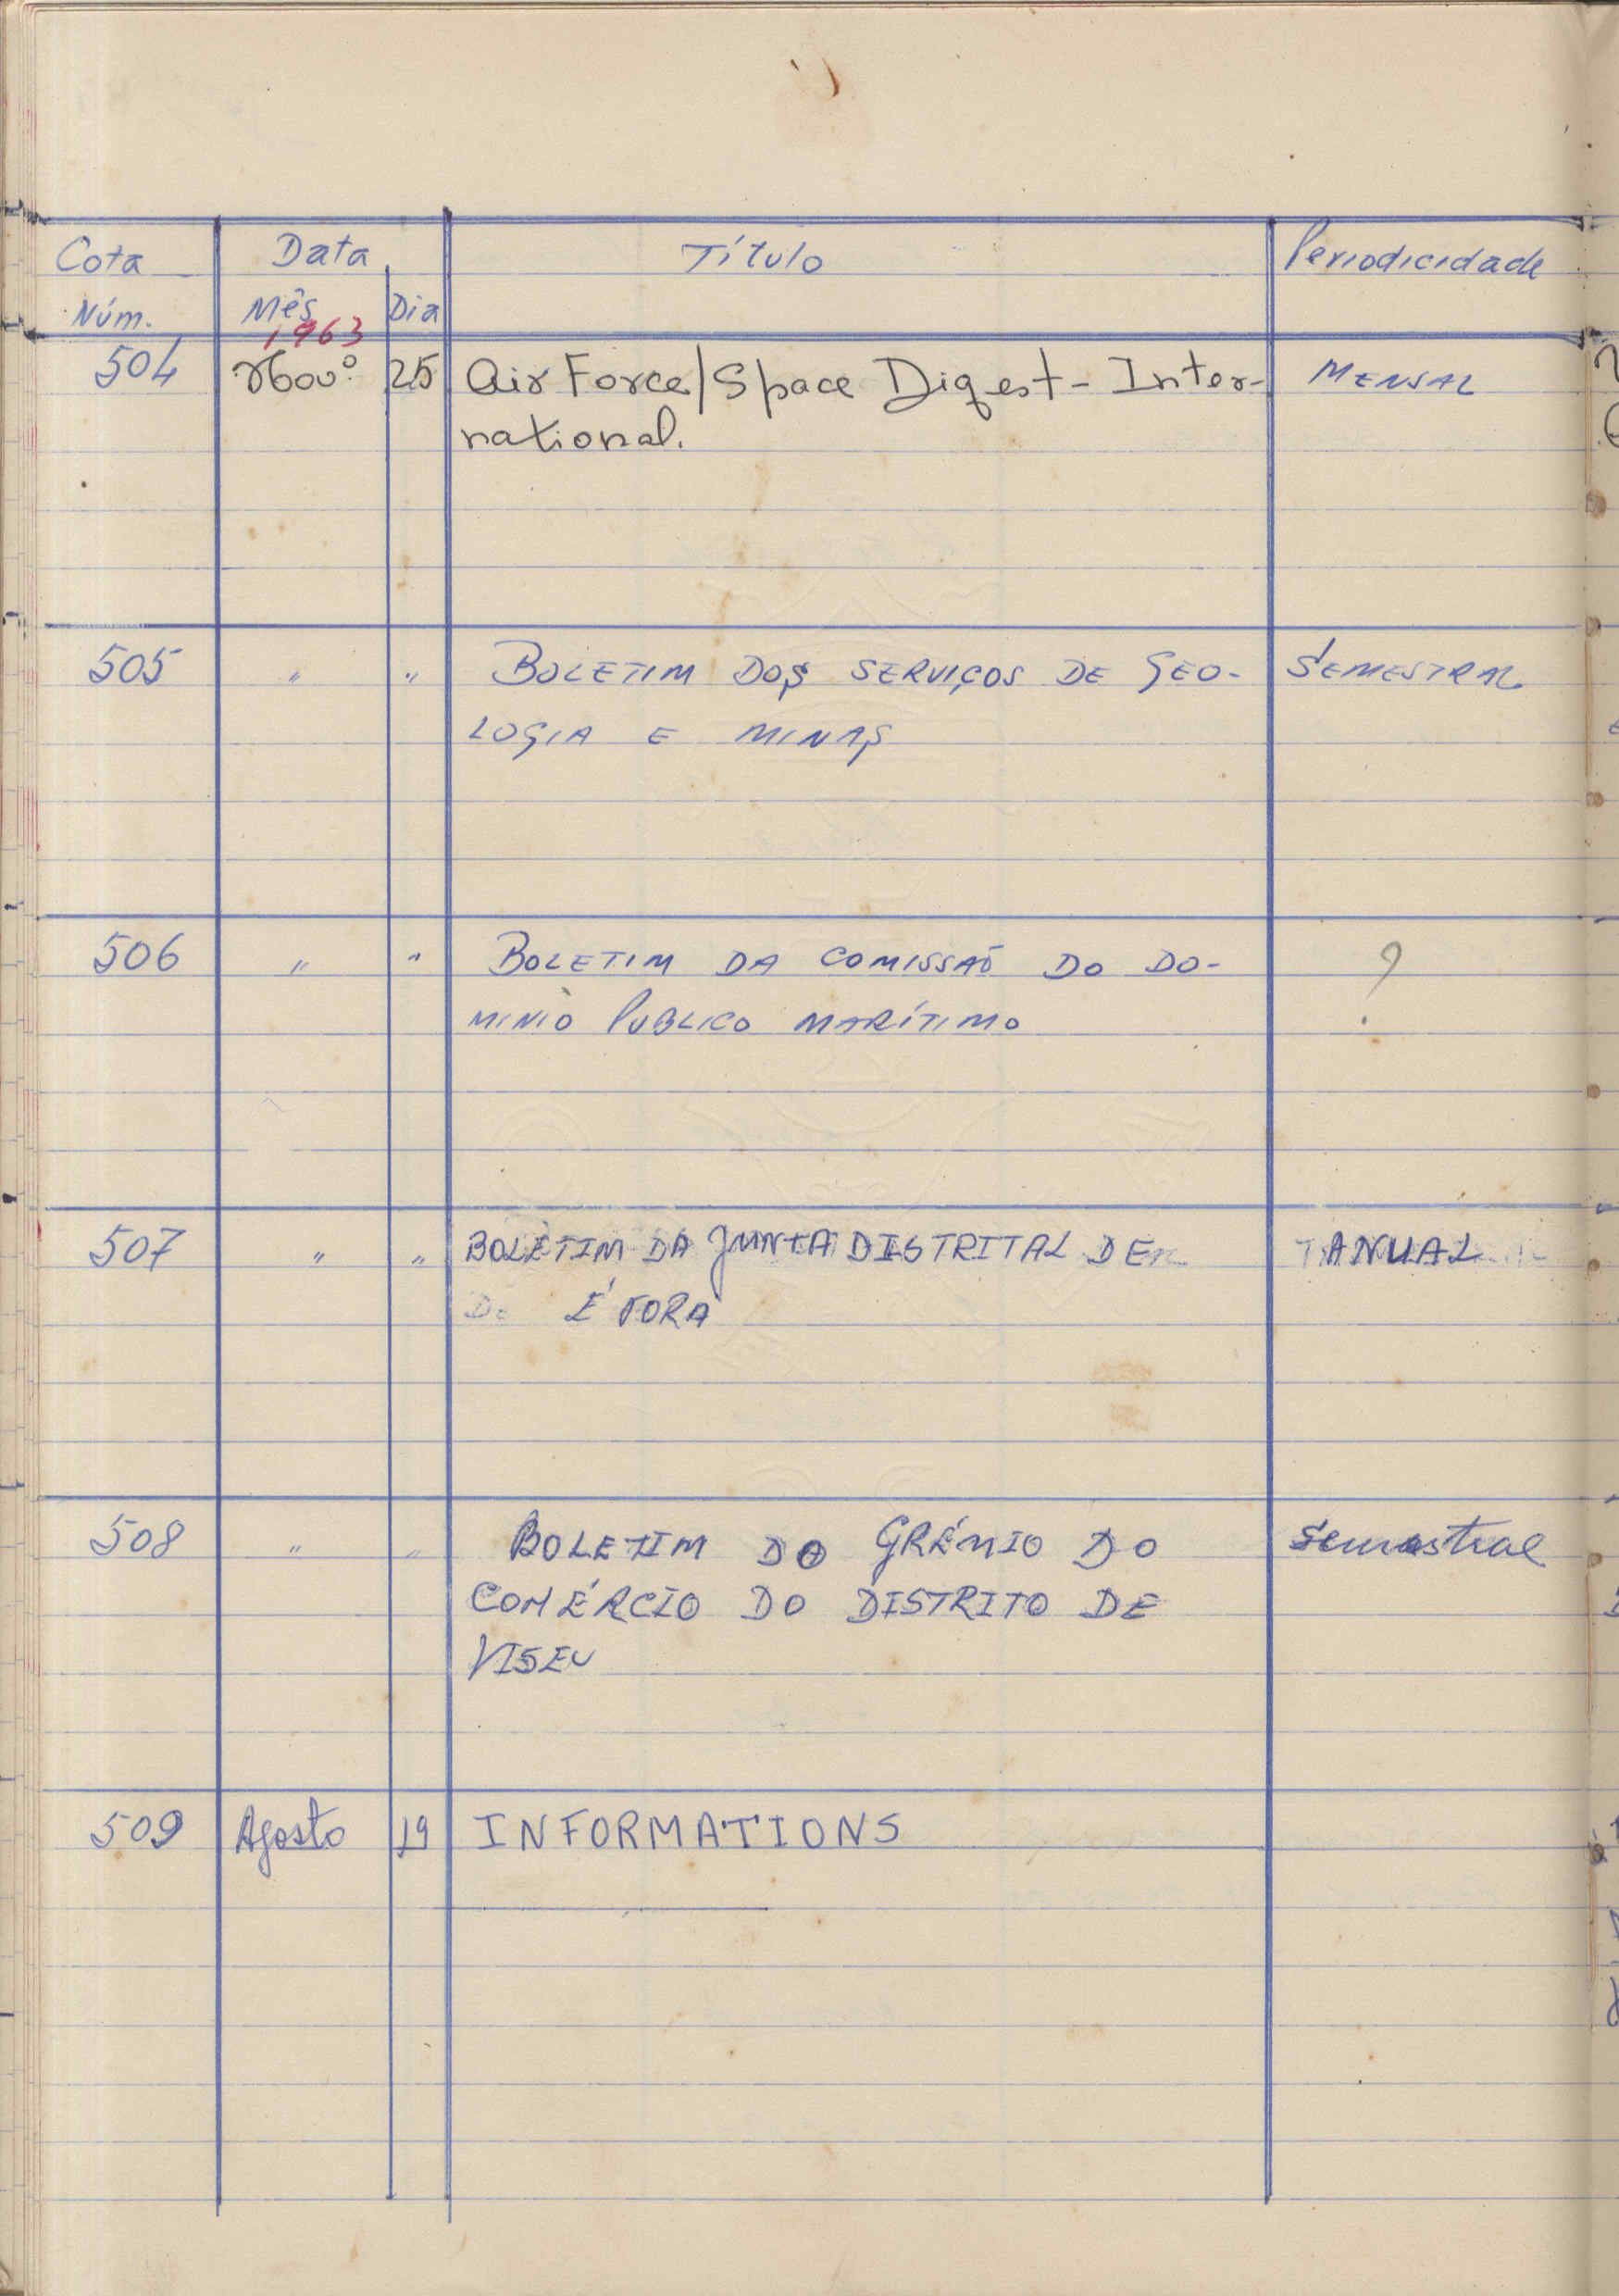 Cota Data Título Periodicidade
Núm. Mês Dia
1963
504 Novº. 25 Air Force/Space Digest - Inter- MENSAL
national.
505 " " BOLETIM DOS SERVIÇOS DE GEO- SEMESTRAL
LOGIA E MINAS
506 " " BOLETIM DA COMISSAÕ DO DO- ?
MINIO PUBLICO MARÍTIMO
507 " " BOLETIM DA JUNTA DISTRITAL DE ANUAL
ÉVORA
508 " " BOLETIM DO GRÉMIO DO Semestral
COMÉRCIO DO DISTRITO DE
VISEU
509 Agosto 19 INFORMATIONS